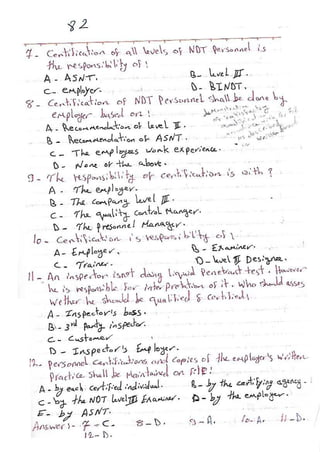 82
7- Certification of all levels of NDT Personnel is
the responsibility of:
A - ASNT. B- level III.
C- employer. D- BINDT.
8- Certification of NDT Personnel shall be done by
employer based on:
A. Recommendation of level III.
B- Recommendation of ASNT.
C- The employees work experience.
D- None of the above.
9- The responsibility of certification is with?
A- The employer.
B- The company level III.
C- The quality control Manger.
D- The presonnel Manager.
10- Certification is responsibility of:
A- Employer. B- Examiner.
C- Trainer. D- level III Designee.
11- An inspector isnot doing liquid Penetrant test. However
he is responsible for interpretation of it. Who should asses
wether he should be qualified & certified:
A- Inspector's boss.
B- 3rd party inspector.
C- Customer
D- Inspector's Employer.
12- personnel Certifications and copies of the employer's written
Practice shall be Maintained on file!
A- by each certified individual. B- by the certifying agency.
C- by the NDT level III Examiner. D- by the employer.
E- by ASNT.
Answer:- 7-C. 8-D. 9-A. 10-A. 11-D.
12-D.